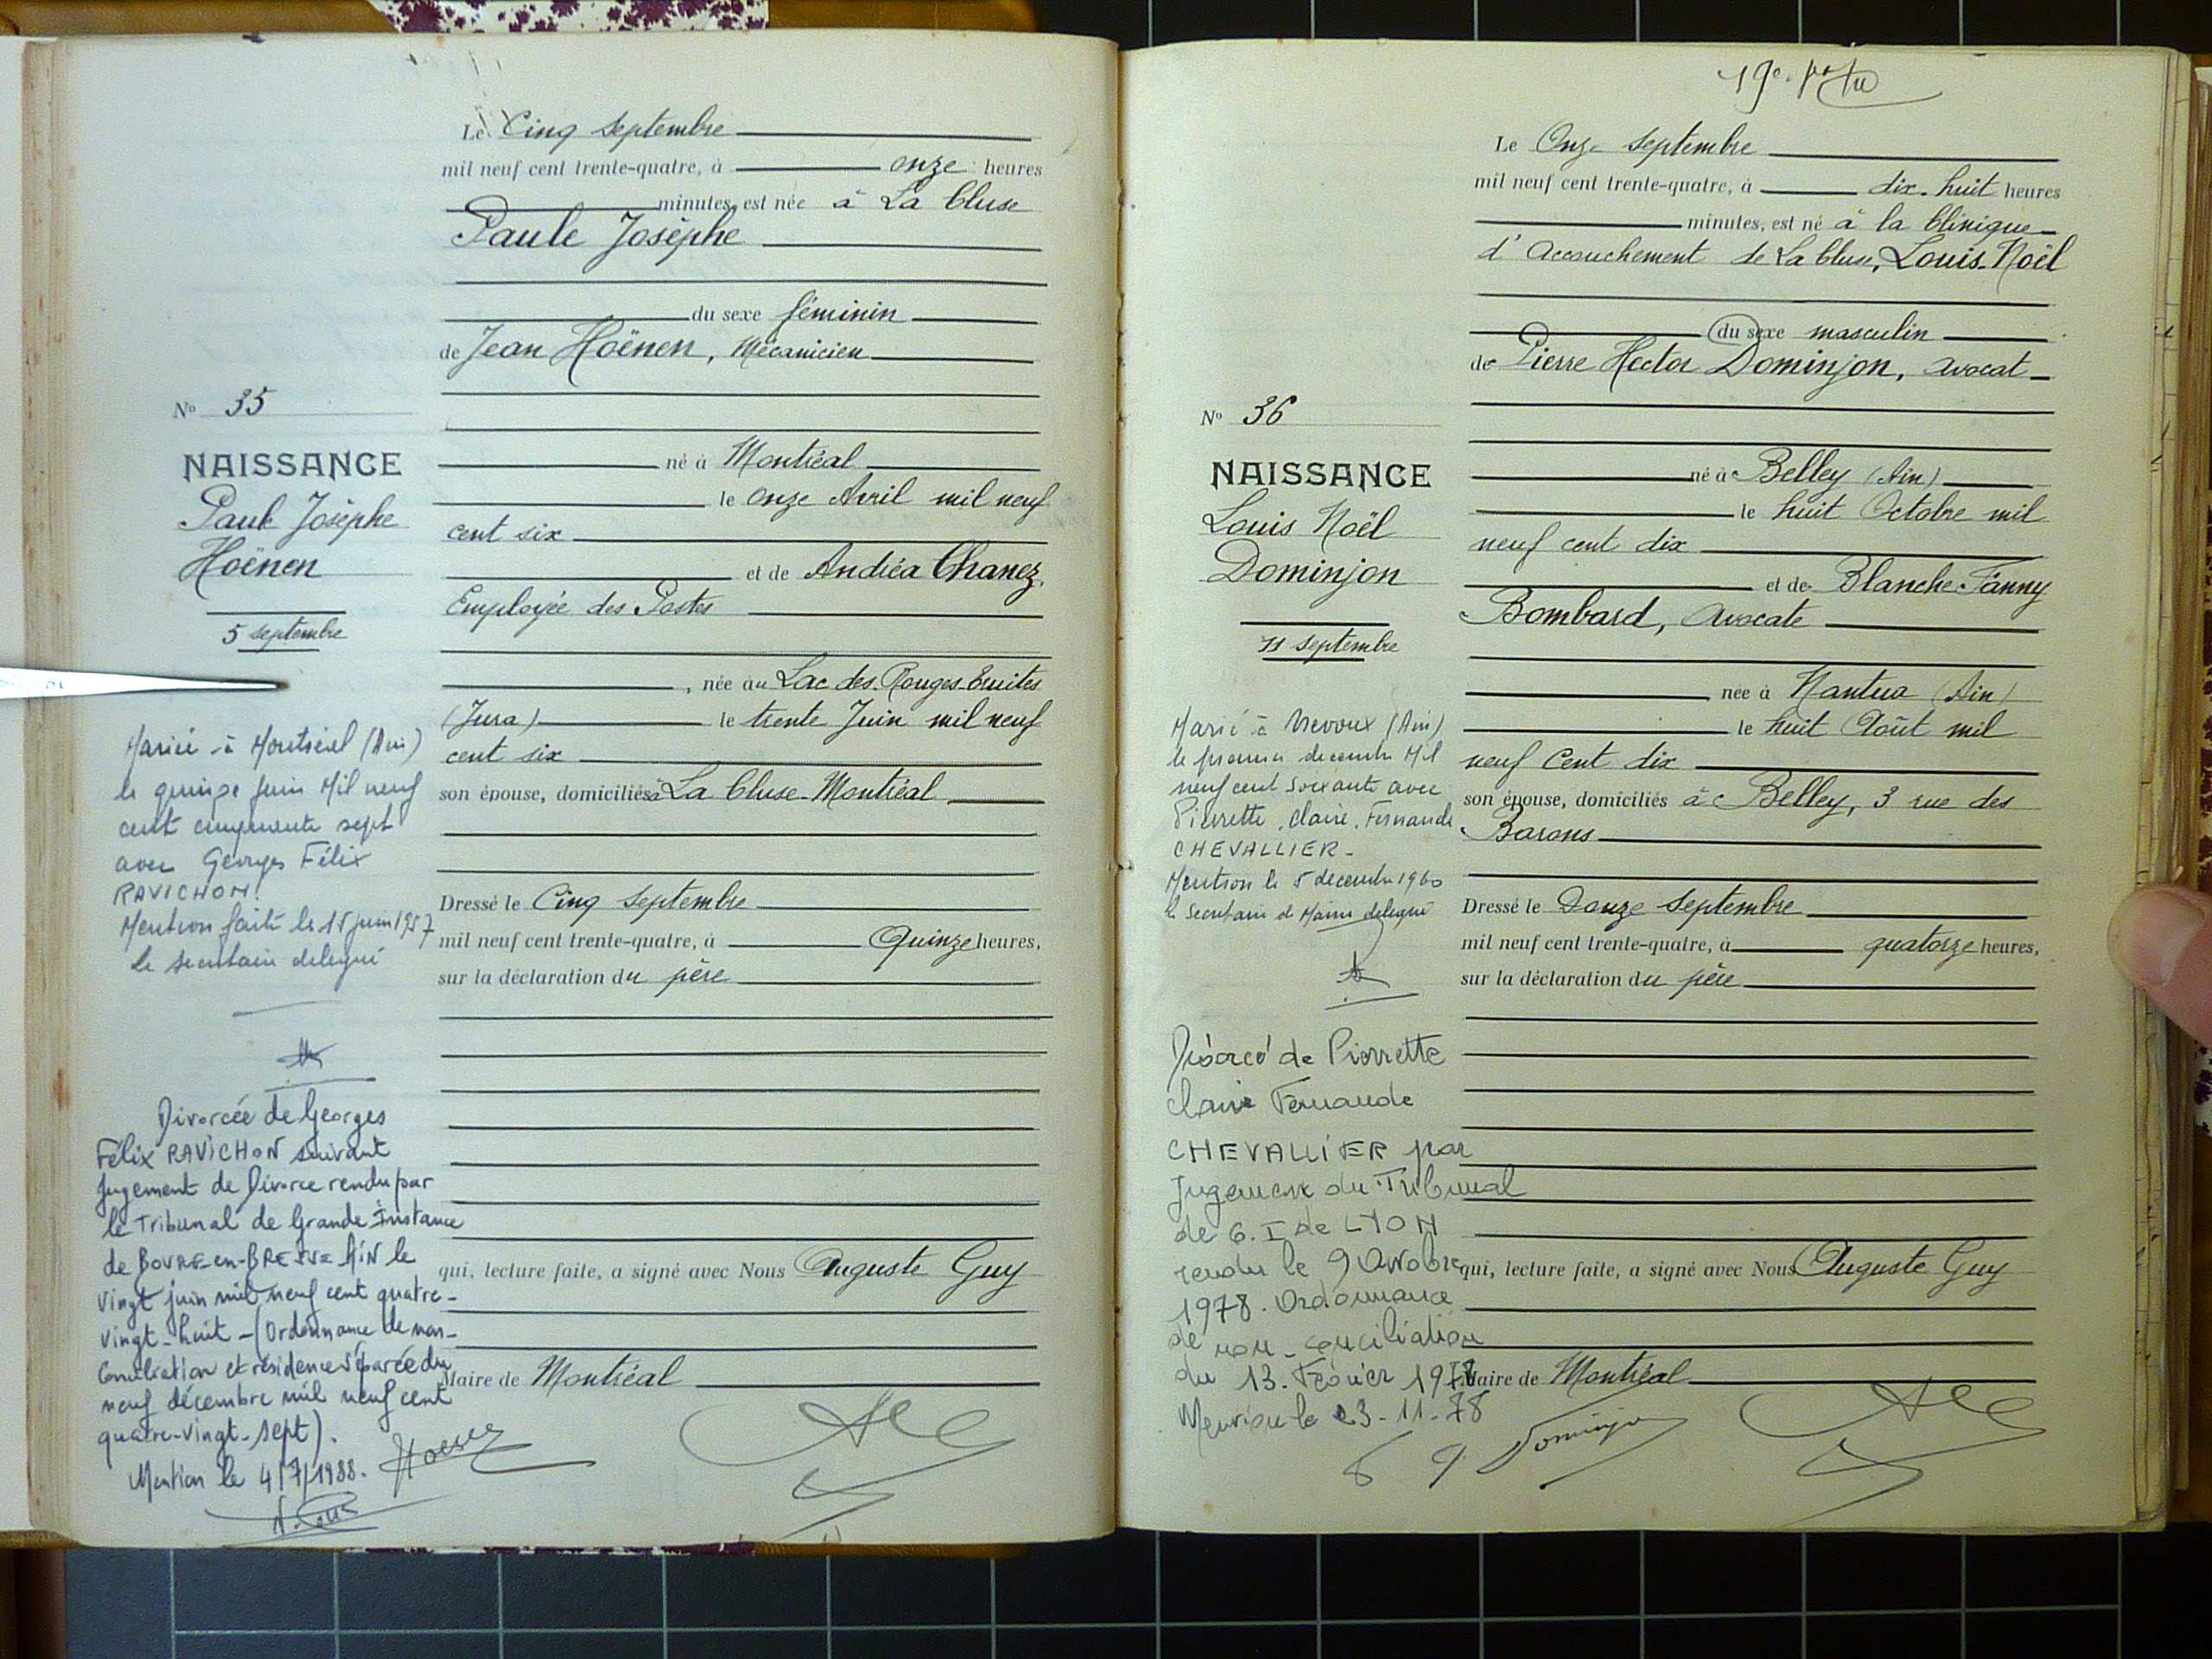 Le Cinq septembre
mil neuf cent trente-quatre, à onze heures
minutes, est née à La Cluse
Paule Josèphe
du sexe féminin
de Jean Hoënen, Mécanicien
né à Montréal
le onze Avril mil neuf
cent six
et de Andréa Chanez,
Employée des Postes
, née au Lac des Rouges-Truites
(Jura) le trente Juin mil neuf
cent six
son épouse, domiciliés à La Cluse-Montréal
Dressé le Cinq septembre
mil neuf cent trente-quatre, à Quinze heures,
sur la déclaration du père
qui, lecture faite, a signé avec Nous Auguste Guy
Maire de Montréal
No 35
NAISSANCE
Paule Josèphe
Hoënen
5 septembre
Mariée à Montréal (Ain)
le quinze juin Mil neuf
cent cinquante sept
avec Georges Félix
RAVICHON.
Mention faite le 15 juin 1957
le secrétaire délégué
Divorcée de Georges
Félix RAVICHON suivant
Jugement de Divorce rendu par
le Tribunal de Grande Instance
de BOURG-en-BRESSE AIN le
vingt juin mil neuf cent quatre-
vingt-huit - (Ordonnance de non-
Conciliation et résidence séparée du
neuf décembre mil neuf cent
quatre-vingt-sept).
Mention le 4/7/1988.
19e
Le Onze septembre
mil neuf cent trente-quatre, à dix-huit heures
minutes, est né à la Clinique
d'Accouchement de La Cluse, Louis-Noël
du sexe masculin
de Pierre Hector Dominjon, avocat
né à Belley (Ain)
le huit Octobre mil
neuf cent dix
et de Blanche Fanny
Bombard, Avocate
née à Nantua (Ain)
le huit Août mil
neuf Cent dix
son épouse, domiciliés à Belley, 3 rue des
Barons
Dressé le Douze septembre
mil neuf cent trente-quatre, à quatorze heures,
sur la déclaration du père
qui, lecture faite, a signé avec Nous Auguste Guy
Maire de Montréal
No 36
NAISSANCE
Louis Noël
Dominjon
11 septembre
Marié à (Ain)
le premier décembre Mil
neuf cent soixante avec
Pierrette, Claire, Fernande
CHEVALLIER -
Mention le 5 décembre 1960
le Secrétaire de Mairie délégué
Divorcé de Pierrette
Claire Fernande
CHEVALLIER par
Jugement du Tribunal
de G. I de LYON
rendu le 9 Octobre
1978. Ordonnance
de non-conciliation
du 13. Février 1978
Mention le 23-11-78
P. Dominjon